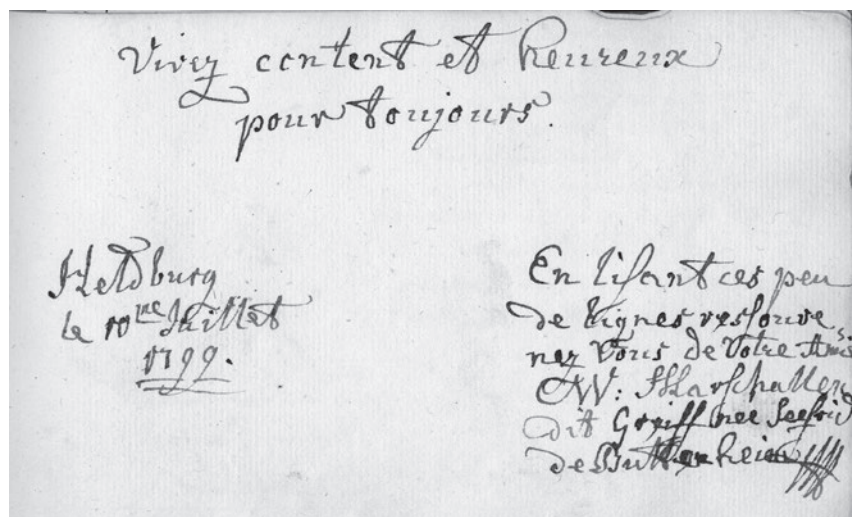 Vivez content et heureux
pour toujours.
Heldburg
le 10me Juillet
1799.
En lisant ces peu
de lignes ressouve,
nez Vous de Votre Amie
W: Marschallen
dit Greiff nee Seefrid
de Buttenheim